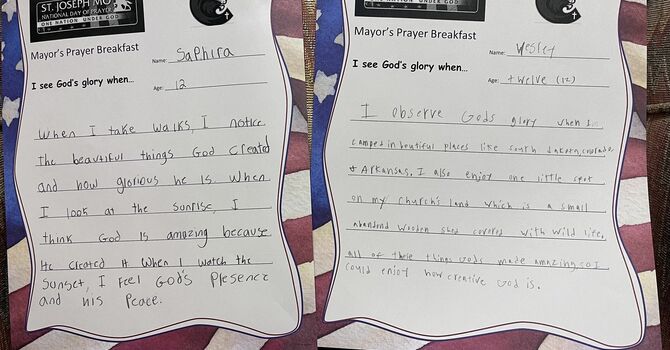 ST. JOSEPH MO
NATIONAL DAY OF PRAYER
ONE NATION UNDER GOD
Mayor's Prayer Breakfast
Name: Saphira
I see God's glory when...
Age: 12
When I take walks, I notice
the beautiful things God created
and how glorious he is. When
I look at the sunrise, I
think God is amazing because
He created it. When I watch the
sunset, I feel God's Presence
and his Peace.
UNDER GOD
Mayor's Prayer Breakfast
Name: Wesley
I see God's glory when...
Age: twelve (12)
I observe Gods glory when I
camped in beutiful places like south dakota, colorado,
& Arkansas. I also enjoy one little spot
on my church's land which is a small
abandond wooden shed covered with wild life,
all of these things Gods made amazing, so I
could enjoy how creative God is.